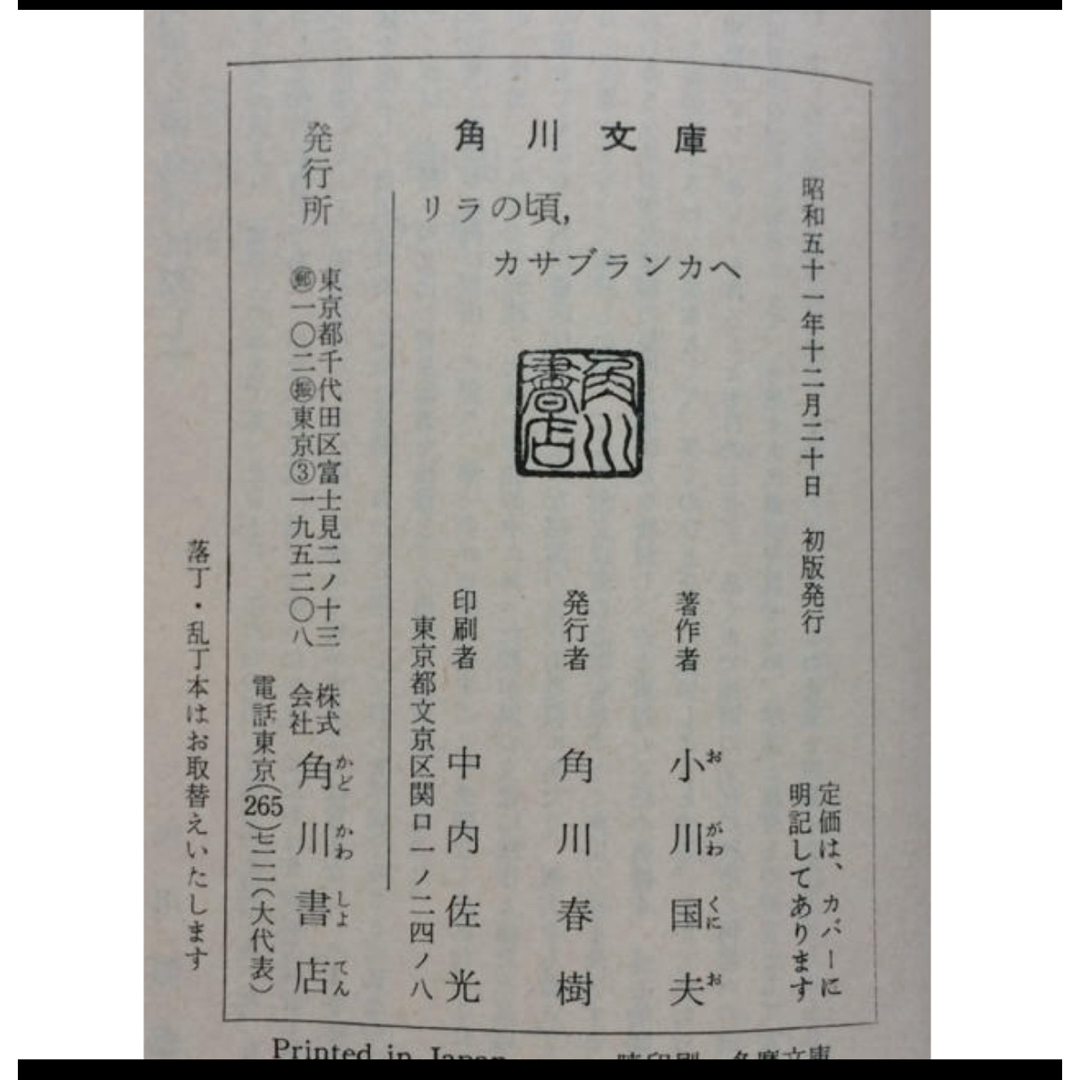 角川文庫
リラの頃,
カサブランカへ
昭和五十一年十二月二十日 初版発行
定価は、カバーに
明記してあります
角川書店
著作者 小川国夫
お がわ くに お
発行者 角川春樹
印刷者 中内佐光
東京都文京区関口一ノ二四ノ八
発行所
東京都千代田区富士見二ノ十三
郵一〇二振東京③一九五二〇八
株式
会社
角川書店
かど かわ しょ てん
電話東京(265)七一一一(大代表)
落丁・乱丁本はお取替えいたします
Printed in Japan